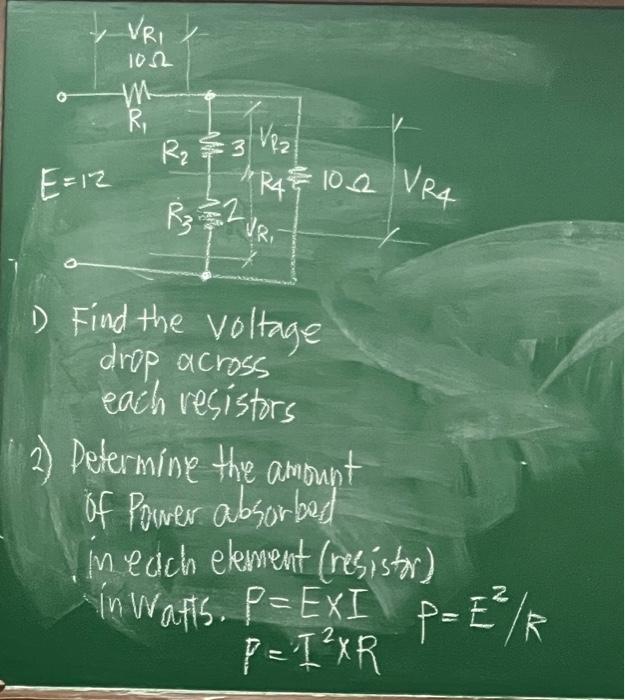 VR1
10Ω
R1
R2 3 VR2
E=12 R4 10Ω VR4
R3 2 VR1
1) Find the voltage
drop across
each resistors
2) Determine the amount
of Power absorbed
in each element (resistor)
in Watts. P=EXI P=E²/R
P=I²XR